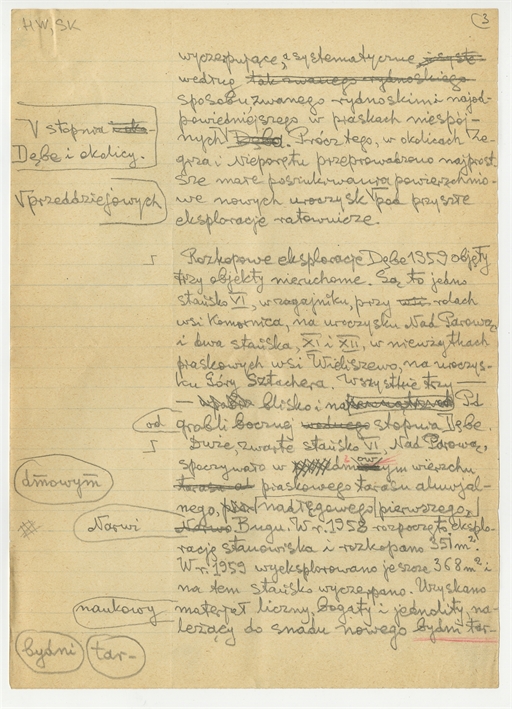 HW, SK
3
wyczerpujące, systematyczne,
według tak zwanego rydnoskiego
sposobu, zwanego rydnoskim i najod-
powiedniejszego w piaskach niespój-
nych Dęba. Prócz tego, w okolicach Ze-
grza i Nieporętu przeprowadzono najprost
sze małe poszukiwania powierzchnio-
we nowych uroczysk pod przyszłe
eksploracje ratownicze.
V stopnia
Dębe i okolicy.
V przeddziejowych
Rozkopowe eksploracje Dębe 1959 objęły
trzy objekty nieruchome. Są to jedno
stańsko VI, w zagajniku, przy wsi rolach
wsi Komornica, na uroczysku Nad Parową
i dwa stańska, XI i XII, w nieużytkach
piaskowych wsi Wieliszewo, na uroczys-
ku Góry Sztachera. Wszystkie trzy
— blisko i na Pd
od
grobli bocznej według stopnia Dębe.
Duże, zwarte stańsko VI, Nad Parową,
spoczywało w dmowym wierzchu
dmowym
tarasa al piaskowego tarasu aluwjal-
nego, nadłęgowego pierwszego,
Narwi
Narwo Bugu. W r. 1958 rozpoczęto eksplo-
rację stanowiska i rozkopano 351 m².
W r. 1959 wyeksplorowano jeszcze 368 m² i
na tem stańsko wyczerpano. Uzyskano
naukowy
materjał liczny, bogaty i jednolity, na-
leżący do snadu nowego bydni tar-
bydni tar-